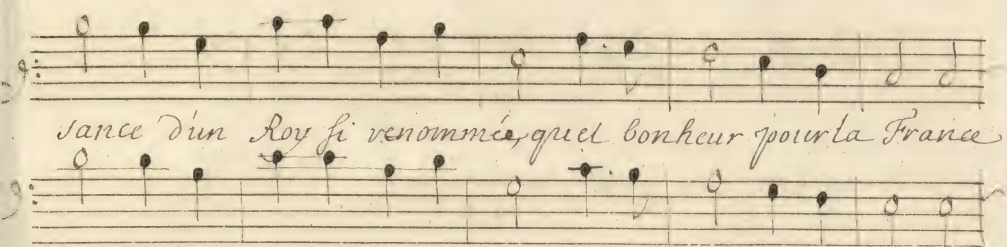 sance d'un Roy si renommée, quel bonheur pour la France